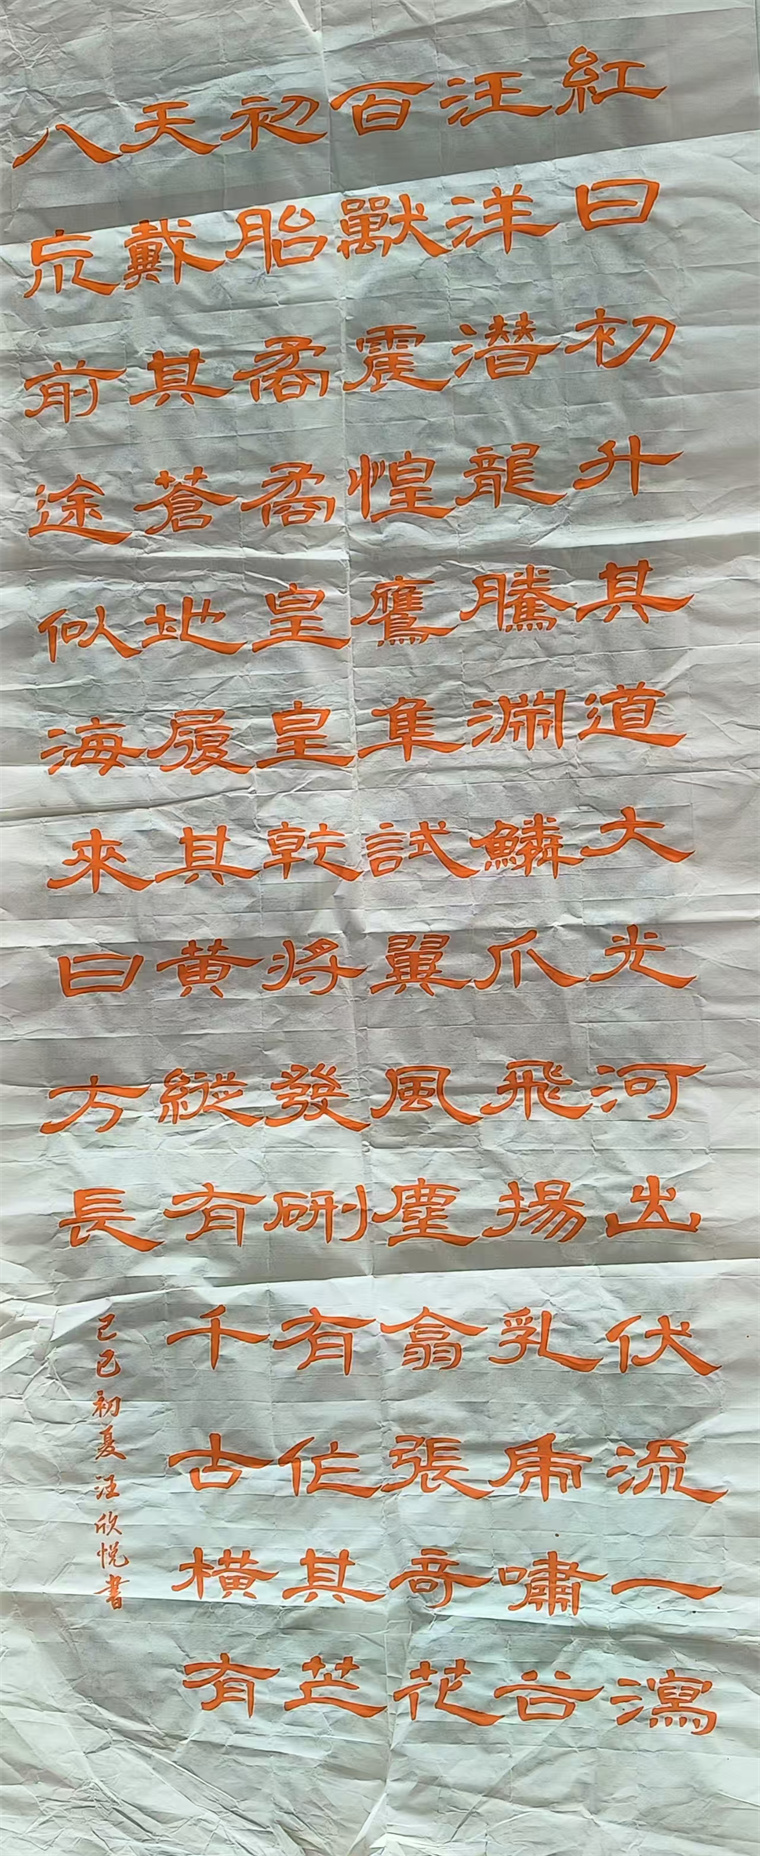 紅日初升其道大光河出伏流一瀉
汪洋潛龍騰淵鱗爪飛揚乳虎嘯谷
百獸震惶鷹隼試翼風塵翕張奇花
初胎矞矞皇皇乾將發硎有作其芒
天戴其蒼地履其黃縱有千古橫有
八荒前途似海來日方長
乙巳初夏汪欣悅書